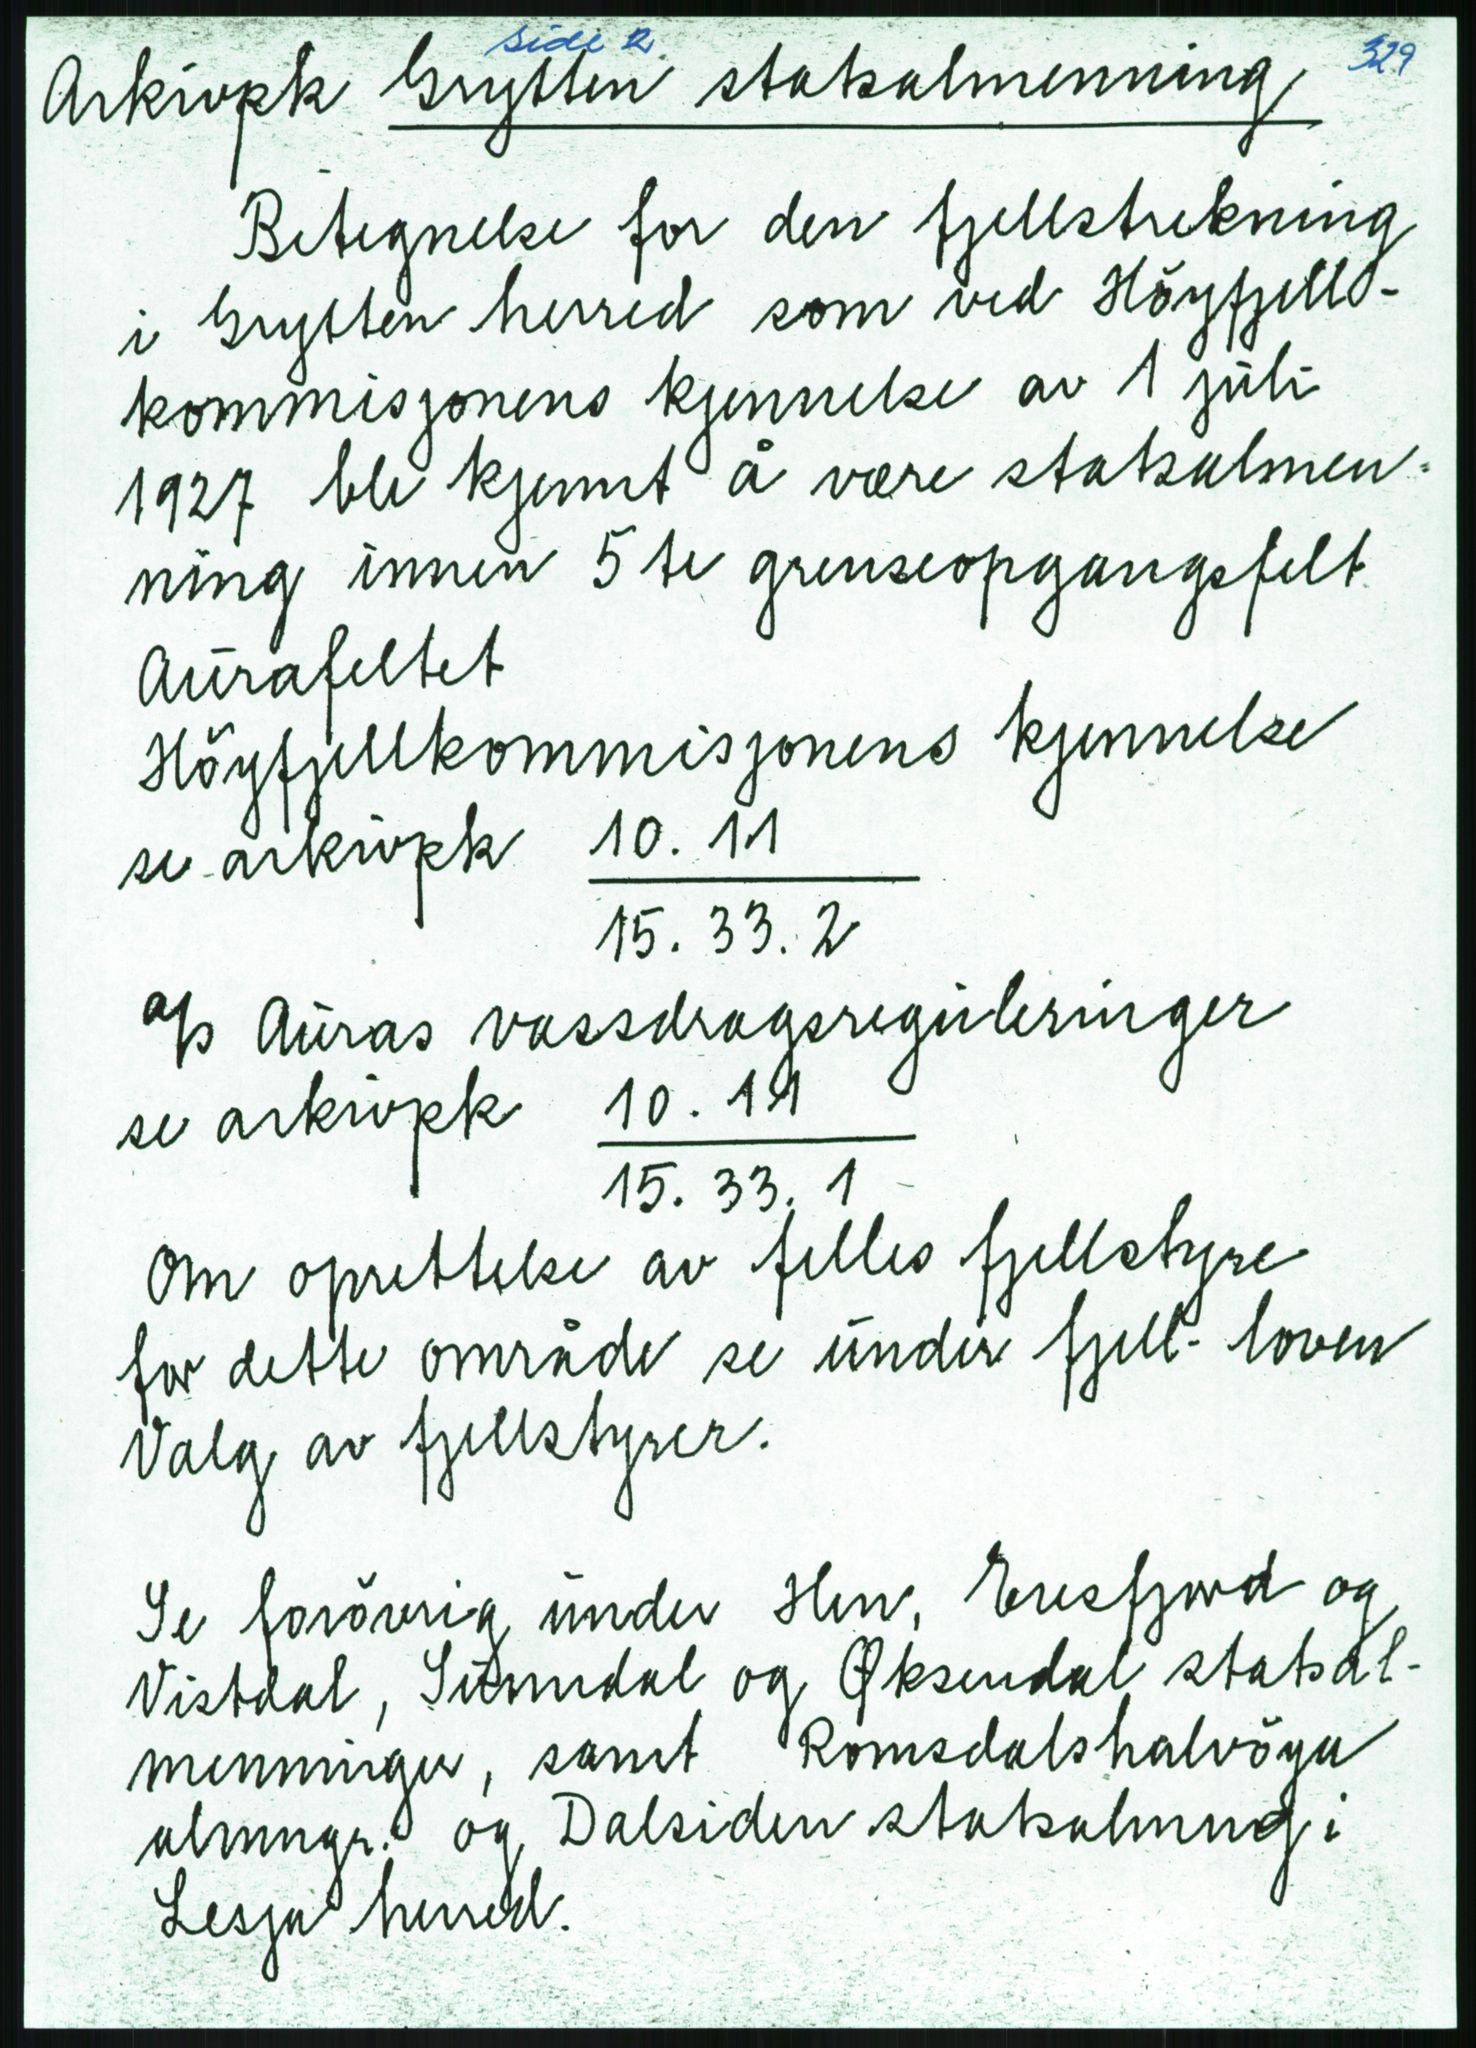 side 2. 329
Arkivpk Grytten statsalmenning
Betegnelse for den fjellstrekning
i Grytten herred som ved Höyfjells-
kommisjonens kjennelse av 1 juli
1927 ble kjennt å være statsalmen-
ning innen 5te grenseopgangsfelt
Aurafeltet
Höyfjellkommisjonens kjennelse
se arkivpk 10. 11
15. 33. 2
a/s Auras vassdragsreguleringer
se arkivpk 10. 11
15. 33. 1
Om oprettelse av felles fjellstyre
for dette område se under fjell-loven
Valg av fjellstyrer.
Se forövrig under Hen, Eresfjord og
Vistdal, Sunndal og Øksendal statsal-
menninger, samt Romsdalshalvöya
almngr. og Dalsiden statsalmng i
Lesja herred.